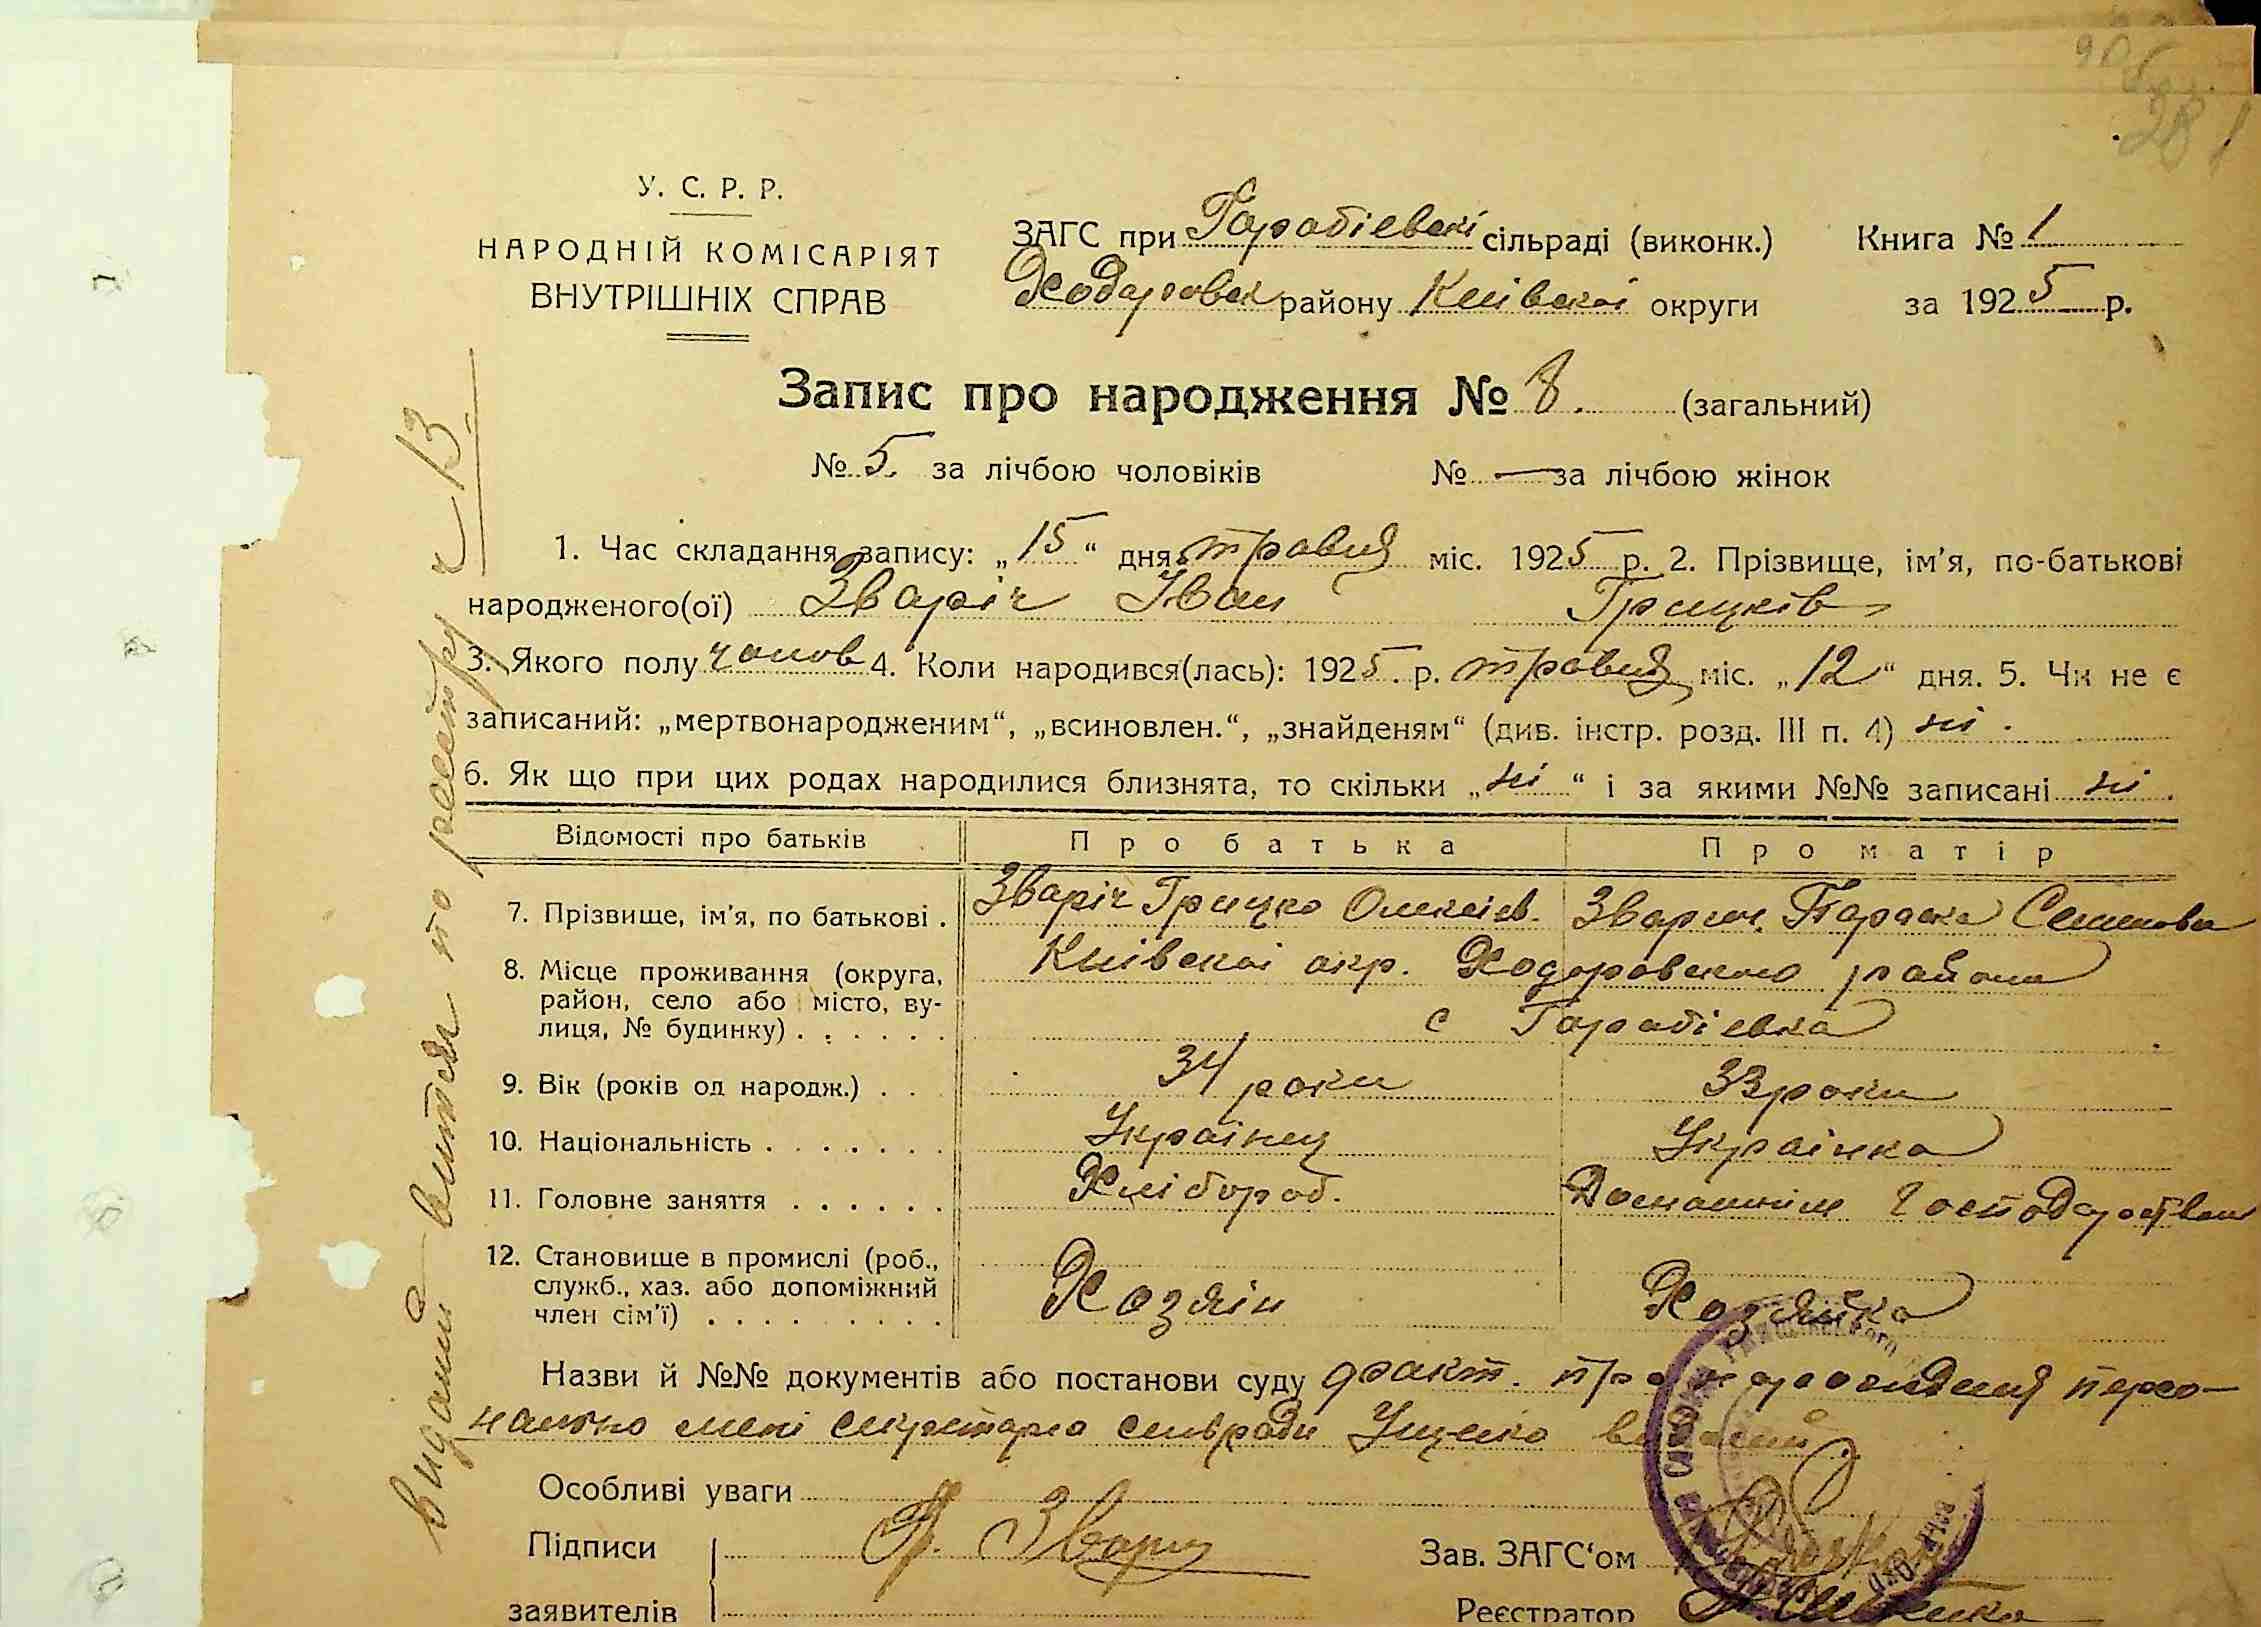 281
У. С. Р. Р.
НАРОДНІЙ КОМІСАРІЯТ
ВНУТРІШНІХ СПРАВ
ЗАГС при Гарабіевскі сільраді (виконк.) Книга № 1
Ходоровск району Київскої округи за 1925 р.
Запис про народження № 8. (загальний)
№ 5. за лічбою чоловіків № — за лічбою жінок
1. Час складання запису: „15“ дня травня міс. 1925 р. 2. Прізвище, ім'я, по-батькові
народженого(ої) Зваріч Іван Грицків
3. Якого полу чолов 4. Коли народився(лась): 1925 р. травня міс. „12“ дня. 5. Чи не є
записаний: „мертвонародженим“, „всиновлен.“, „знайденям“ (див. інстр. розд. III п. 4) ні.
6. Як що при цих родах народилися близнята, то скільки „ні“ і за якими №№ записані ні.
Відомості про батьків Про батька Про матір
7. Прізвище, ім'я, по батькові . Зваріч Грицко Олексіев. Зварич Параска Семенова
8. Місце проживання (округа, район, село або місто, вулиця, № будинку) . . . . . . Київскої окр. Ходоровского района
с Гарабіевка
9. Вік (років од народж.) . . 34 роки 33 роки
10. Національність . . . . . . . Українец Українка
11. Головне заняття . . . . . . Хлібороб. Домашнім Господарством
12. Становище в промислі (роб.,
служб., хаз. або допоміжний
член сім'ї) . . . . . . . . . Хозяін Хозяйка
Назви й №№ документів або постанови суду факт. про народження персо-
нально мені секретарю сельради
Особливі уваги
Підписи Зварич
Зав. ЗАГС‘ом
заявителів
Реєстратор
видано витяг по реєстру ч 13